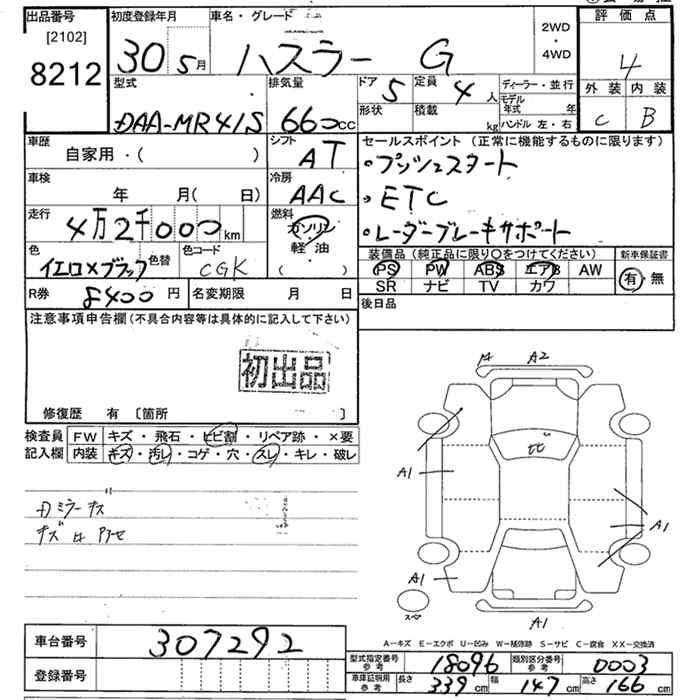 出品番号
[2102]
8212
初度登録年月
30 5月
車名・グレード
ハスラー G
2WD
・
4WD
評価点
4
外装 内装
C B
型式
DAA-MR41S
排気量
660CC
ドア 5
定員 4人
形状
積載 kg
ディーラー・並行
モデル年式 年
ハンドル 左・右
車歴
自家用・( )
シフト
AT
車検
年 月( 日)
冷房
AAC
走行
4万2千000km
燃料
ガソリン
軽・油
( ・ )
色
イエロ×ブラック
色替
色コード
CGK
R券 8400円
名変期限 月 日
セールスポイント (正常に機能するものに限ります)
・プッシュスタート
・ETC
・レーダーブレーキサポート
装備品(純正品に限り○をつけてください)
新車保証書
PS PW ABS エアB AW
SR ナビ TV カワ
有・無
後日品
注意事項申告欄(不具合内容等は具体的に記入して下さい)
初出品
修復歴 有 〔箇所 〕
検査員
記入欄
FW キズ・飛石・ヒビ割・リペア跡・×要
内装 キズ・汚レ・コゲ・穴・スレ・キレ・破レ
Dミラーキズ
A2
ヒビ
A1
A1
A1
スペア
A1
車台番号 307292
登録番号
A-キズ E-エクボ U-凹み W-補修跡 S-サビ C-腐食 XX-交換済
型式指定番号 参考 18096
類別区分番号 参考 0003
車庫証明用 参考 長さ 339cm 幅 147cm 高さ 166cm